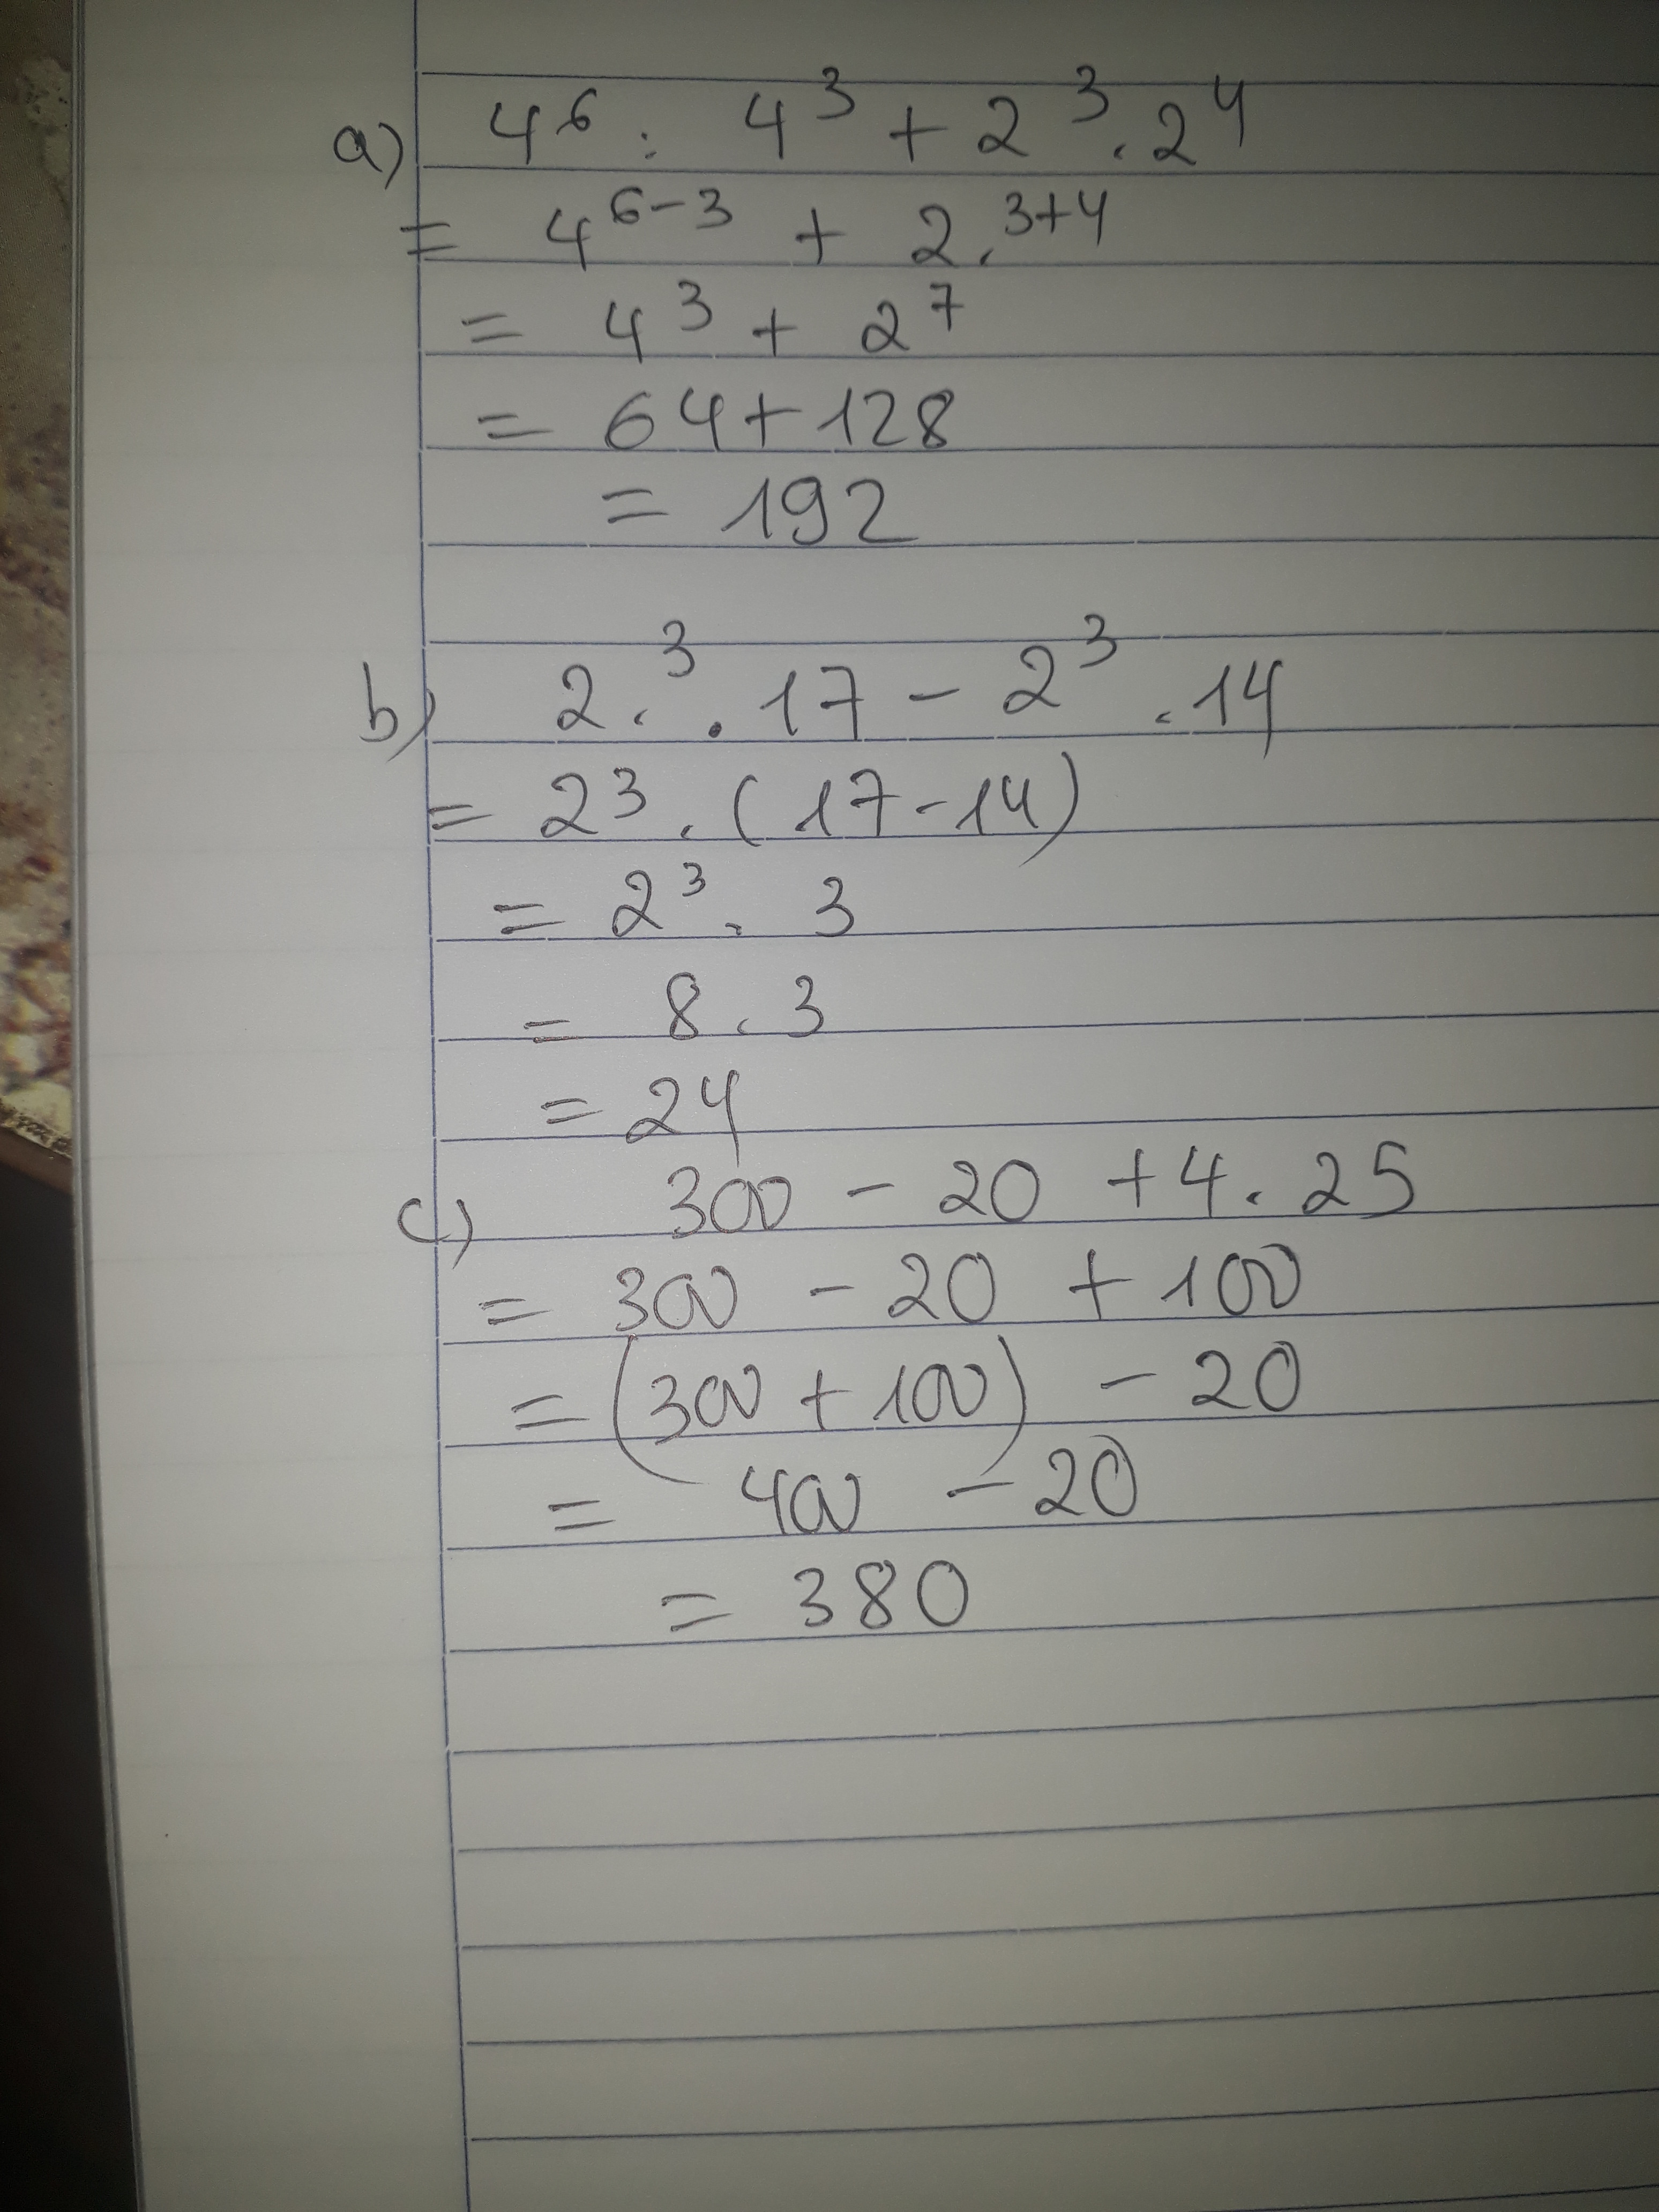 a) 4⁶ : 4³ + 2³ . 2⁴
= 4⁶⁻³ + 2.³⁺⁴
= 4³ + 2⁷
= 64 + 128
= 192
b) 2.³ . 17 - 2³ . 14
= 2³ . (17 - 14)
= 2³ . 3
= 8 . 3
= 24
c) 300 - 20 + 4 . 25
= 300 - 20 + 100
= (300 + 100) - 20
= 400 - 20
= 380